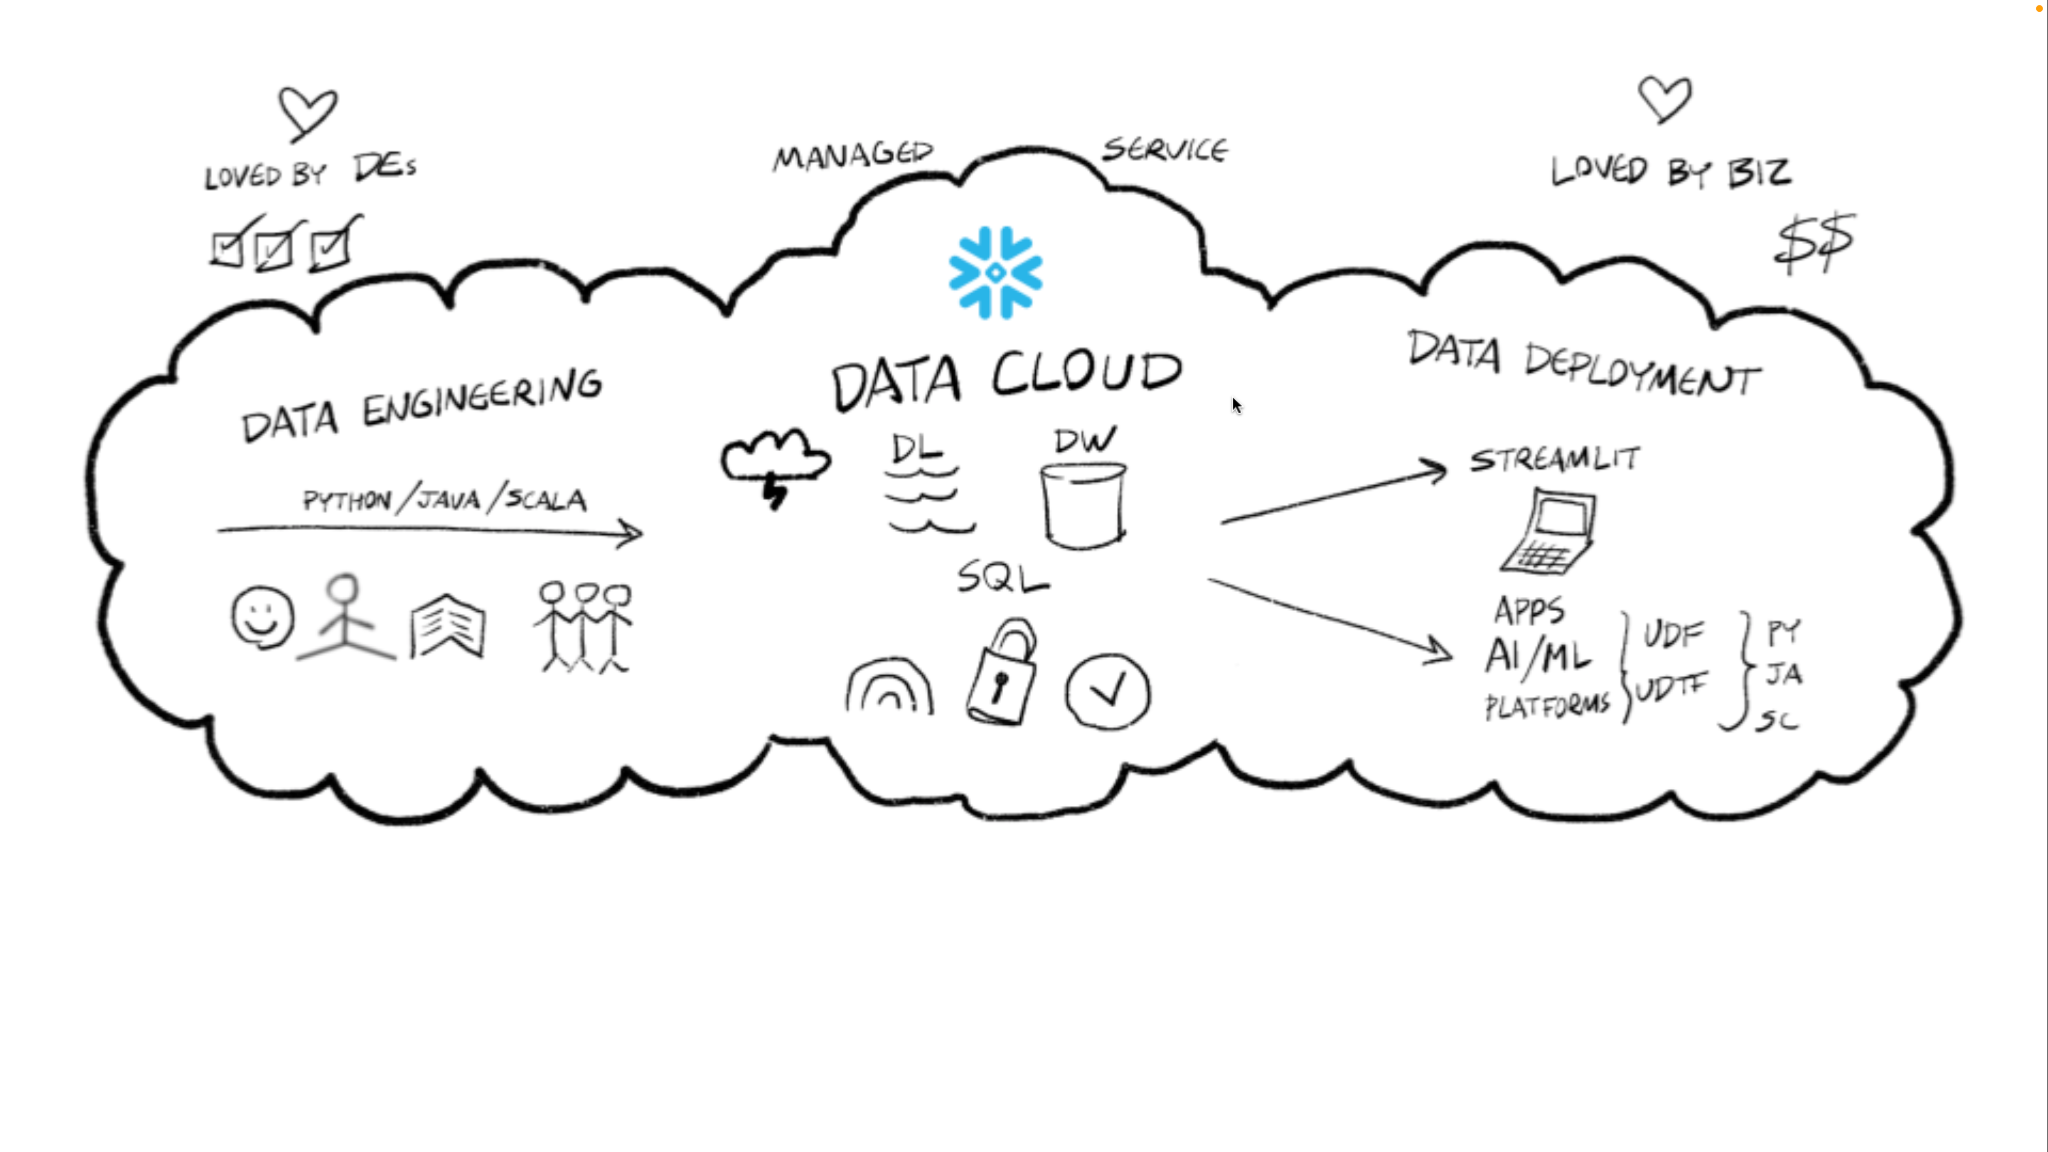 LOVED BY DEs
MANAGED SERVICE
LOVED BY BIZ
$$
DATA ENGINEERING
PYTHON/JAVA/SCALA
DATA CLOUD
DL
DW
SQL
DATA DEPLOYMENT
STREAMLIT
APPS
AI/ML
PLATFORMS
UDF
UDTF
PY
JA
SC